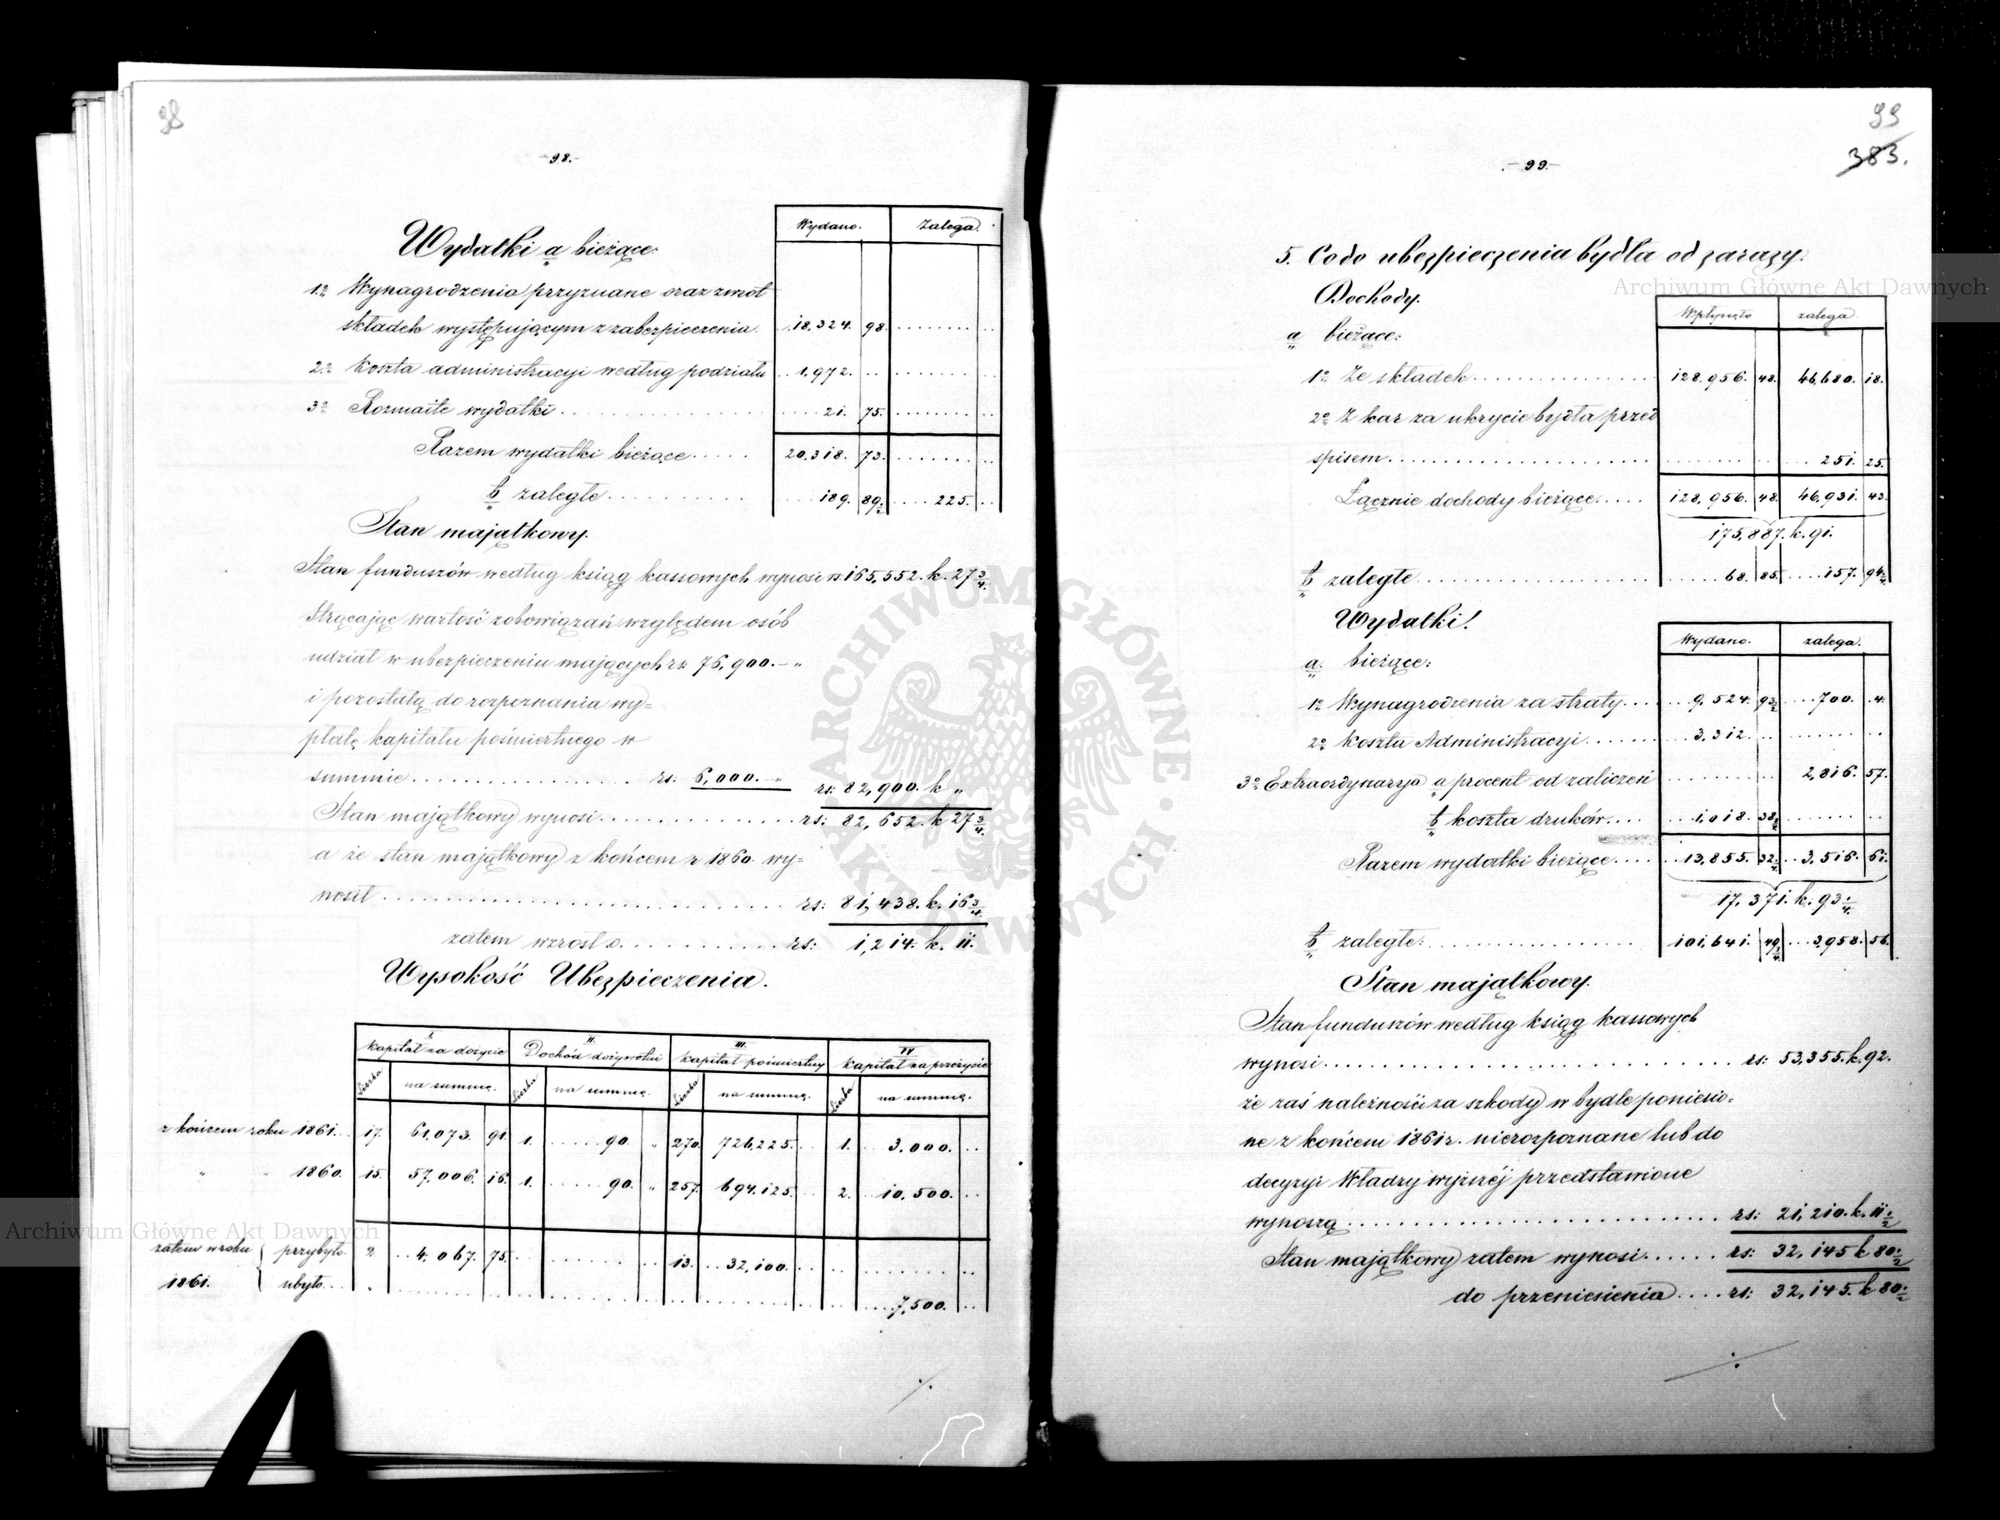 98
-98.-
Wydano. Zalega.
Wydatki a bieżące:
1o Wynagrodzenia przyznane oraz zwrot
składek występującym z zabezpieczenia. 18,324. 98.
2o Koszta administracyi według podziału 1,972.
3o Rozmaite wydatki 21. 75.
Razem wydatki bieżące 20,318. 73.
b zaległe 189. 89½ 225.
Stan majątkowy.
Stan funduszów według ksiąg kassowych wynosi rs 165,552. k. 27¾.
Strącając wartość zobowiązań względem osób
udział w ubezpieczeniu mających rs 76,900. — „
i pozostałą do rozpoznania wy=
płatę kapitału pośmiertnego w
summie rs: 6,000. — „ rs: 82,900. k „
Stan majątkowy wynosi rs: 82,652. k 27¾.
a że stan majątkowy z końcem r 1860. wy=
nosił rs: 81,438. k. 16¾.
zatem wzrosł o rs: 1,214. k. 11.
Wysokość Ubezpieczenia.
I. II. III. IV
Kapitał na dożycie Dochód dożywotni Kapitał pośmiertny Kapitał na przeżycie
liczba na summę. liczba na summę. liczba na summę. liczba na summę.
z końcem roku 1861. 17. 61,073. 91. 1. 90. „ 270. 726,225. 1. 3,000.
„ „ 1860. 15. 57,006. 16. 1. 90. „ 257. 694,125. 2. 10,500.
zatem w roku przybyło 2 4,067. 75. 13. 32,100.
1861. ubyło „ 7,500.
./.
99
383.
-99-
5. Co do ubezpieczenia bydła od zarazy.
Dochody.
Wpłynęło zalega
a bieżące:
1o Ze składek 128,956. 48. 46,680. 18.
2o Z kar za ukrycie bydła przed
spisem 251. 25.
Łącznie dochody bieżące 128,956. 48. 46,931. 43.
175,887. k. 91.
b zaległe 68. 85. 157. 94½
Wydatki!
Wydano. zalega.
a. bieżące:
1o Wynagrodzenia za straty 9,524. 93½ 700. 4.
2o Koszta Administracyi 3,312.
3o Extraordynarya a procent od zaliczeń 2,816. 57.
b koszta druków 1,018. 38¾
Razem wydatki bieżące 13,855. 32¼ 3,516. 61.
17,371. k. 93¼.
b zaległe: 101,641. 49¼ 3,958. 56.
Stan majątkowy.
Stan funduszów według ksiąg kassowych
wynosi rs: 53,355. k. 92.
że zaś należności za szkody w bydle poniesio=
ne z końcem 1861 r. nierozpoznane lub do
decyzyi Władzy wyższéj przedstawione
wynoszą rs: 21,210. k. 11½
Stan majątkowy zatem wynosi rs: 32,145 k 80½
do przeniesienia rs: 32,145. k 80½
./.
Archiwum Główne Akt Dawnych
Archiwum Główne Akt Dawnych
ARCHIWUM GŁÓWNE AKT DAWNYCH